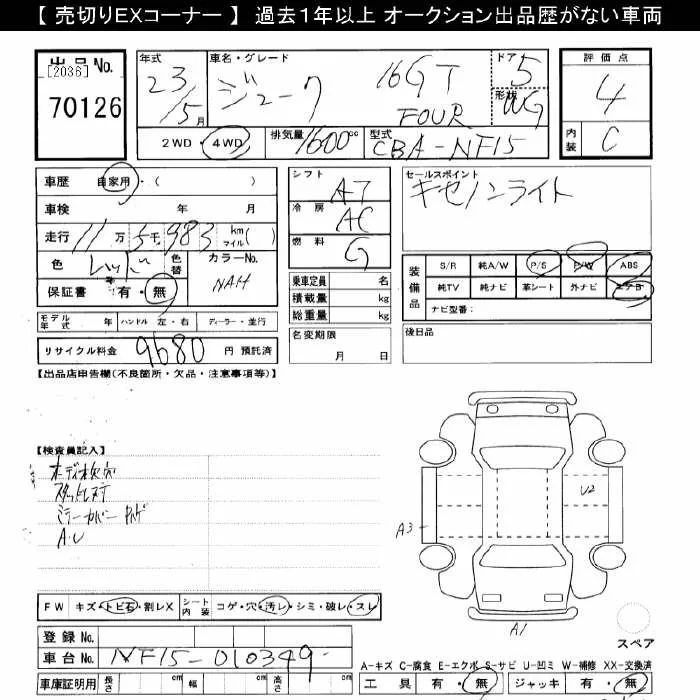 【 売切りEXコーナー 】 過去1年以上 オークション出品歴がない車両
出品No.
[2036]
70126
年式
23/5月
車名・グレード
ジューク 16GT FOUR
ドア 5
形状 WG
評価点
4
内装 C
2WD・4WD
排気量 1600cc
型式 CBA-NF15
車歴 自家用・( )
車検 年 月
走行 11万5千983 km マイル( )
色 レッド 色替 カラーNo. NAH
保証書 有・無
シフト AT
冷房 AC
燃料 G
セールスポイント
キセノンライト
乗車定員 名
積載量 kg
総重量 kg
装備品
S/R 純A/W P/S P/W ABS
純TV 純ナビ 革シート 外ナビ エアB
ナビ型番:
モデル年式 年 ハンドル 左・右 ディーラー・並行
名変期限
月 日
後日品
リサイクル料金 9680 円 預託済
【出品店申告欄(不良箇所・欠品・注意事項等)】
【検査員記入】
ボディ
A3
U2
A1
スペア
FW キズ・トビ石・割レX シート内装 コゲ・穴・汚レ・シミ・破レ・スレ
登録No.
車台No. NF15-010349
A-キズ C-腐食 E-エクボ S-サビ U-凹ミ W-補修 XX-交換済
車庫証明用 長さ cm 幅 cm 高さ cm
工具 有・無 ジャッキ 有・無